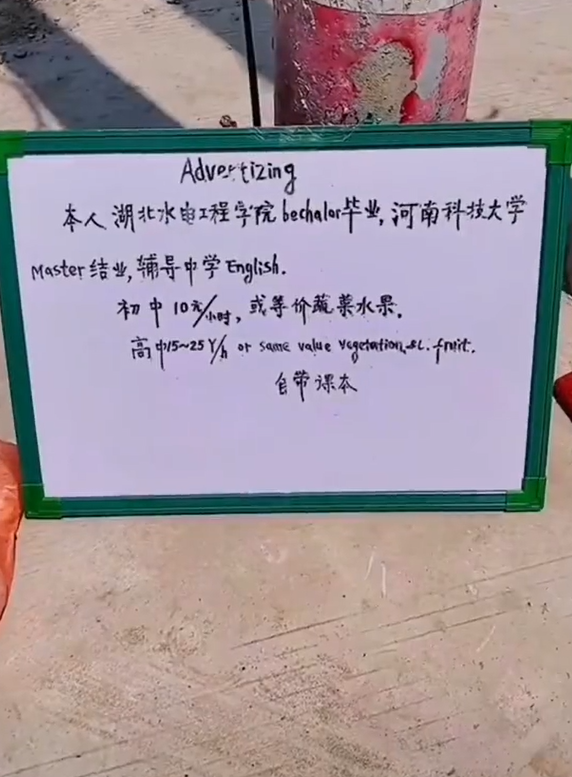 Advertizing
本人湖北水电工程学院bechalor毕业,河南科技大学
Master结业,辅导中学English.
初中10元/小时,或等价蔬菜水果.
高中15~25Y/h or same value vegetation, &c. fruit.
自带课本